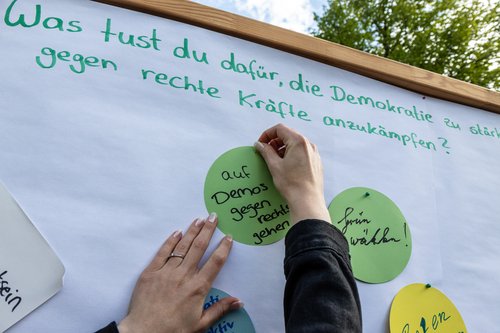 Was tust du dafür, die Demokratie zu stärk
gegen rechte Kräfte anzukämpfen?
auf
Demos
gegen
rechts
gehen
Grün
wählen!
tsein